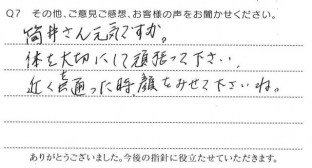 Q7 その他、ご意見ご感想、お客様の声をお聞かせください。
筒井さん元気ですか。
体を大切にして頑張って下さい。
近くを通った時、顔をみせて下さいね。
ありがとうございました。今後の指針に役立たせていただきます。